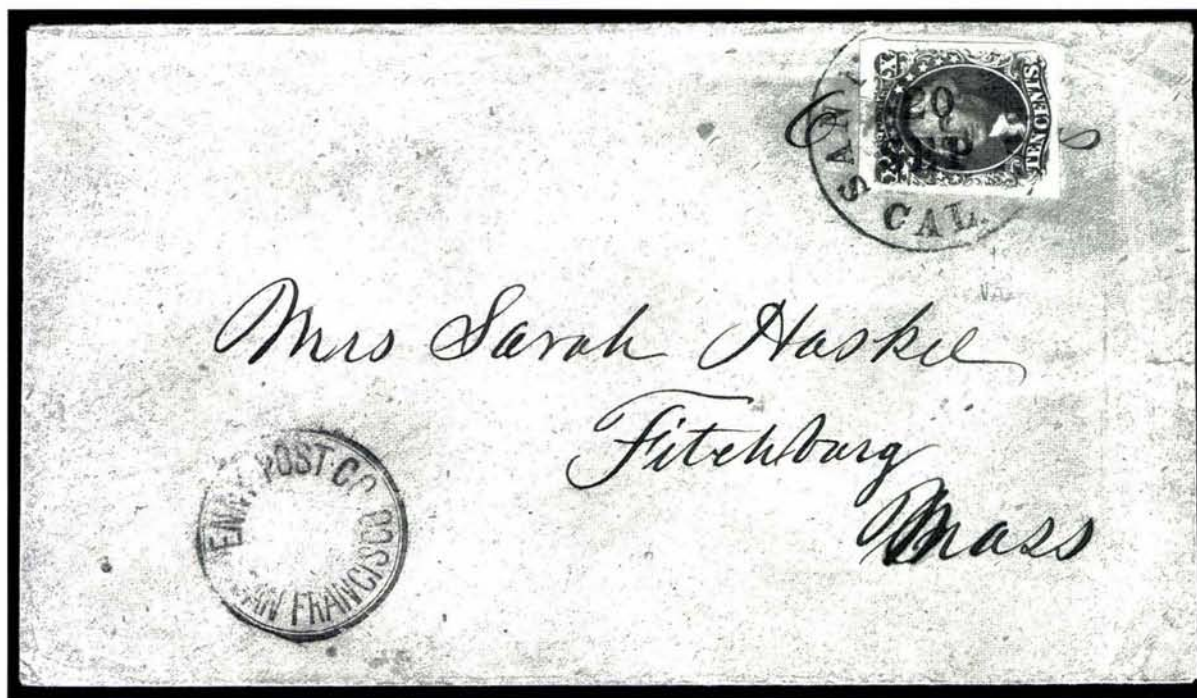 SAN
20
CAL.
X
TEN CENTS
Mrs Sarah Haskell
Fitchburg
Mass
PENNY POST CO.
SAN FRANCISCO